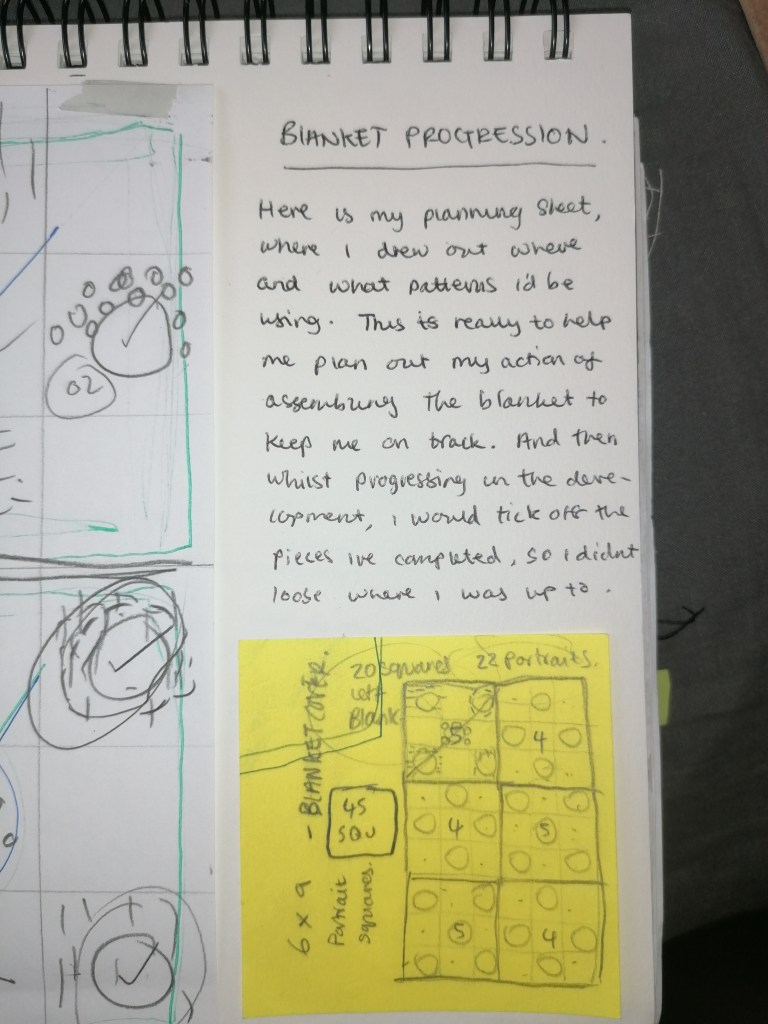 BLANKET PROGRESSION.
Here is my planning sheet,
where I drew out where
and what patterns i'd be
using. This is really to help
me plan out my action of
assembling the blanket to
keep me on track. And then
whilst progressing in the deve-
lopment, i would tick off the
pieces ive completed, so i didnt
loose where i was up to.
02
20 squares 22 portraits.
left
Blank
- BLANKET COVER.
6 x 9
45
SQU
Portrait
squares.
5
4
4
5
5
4